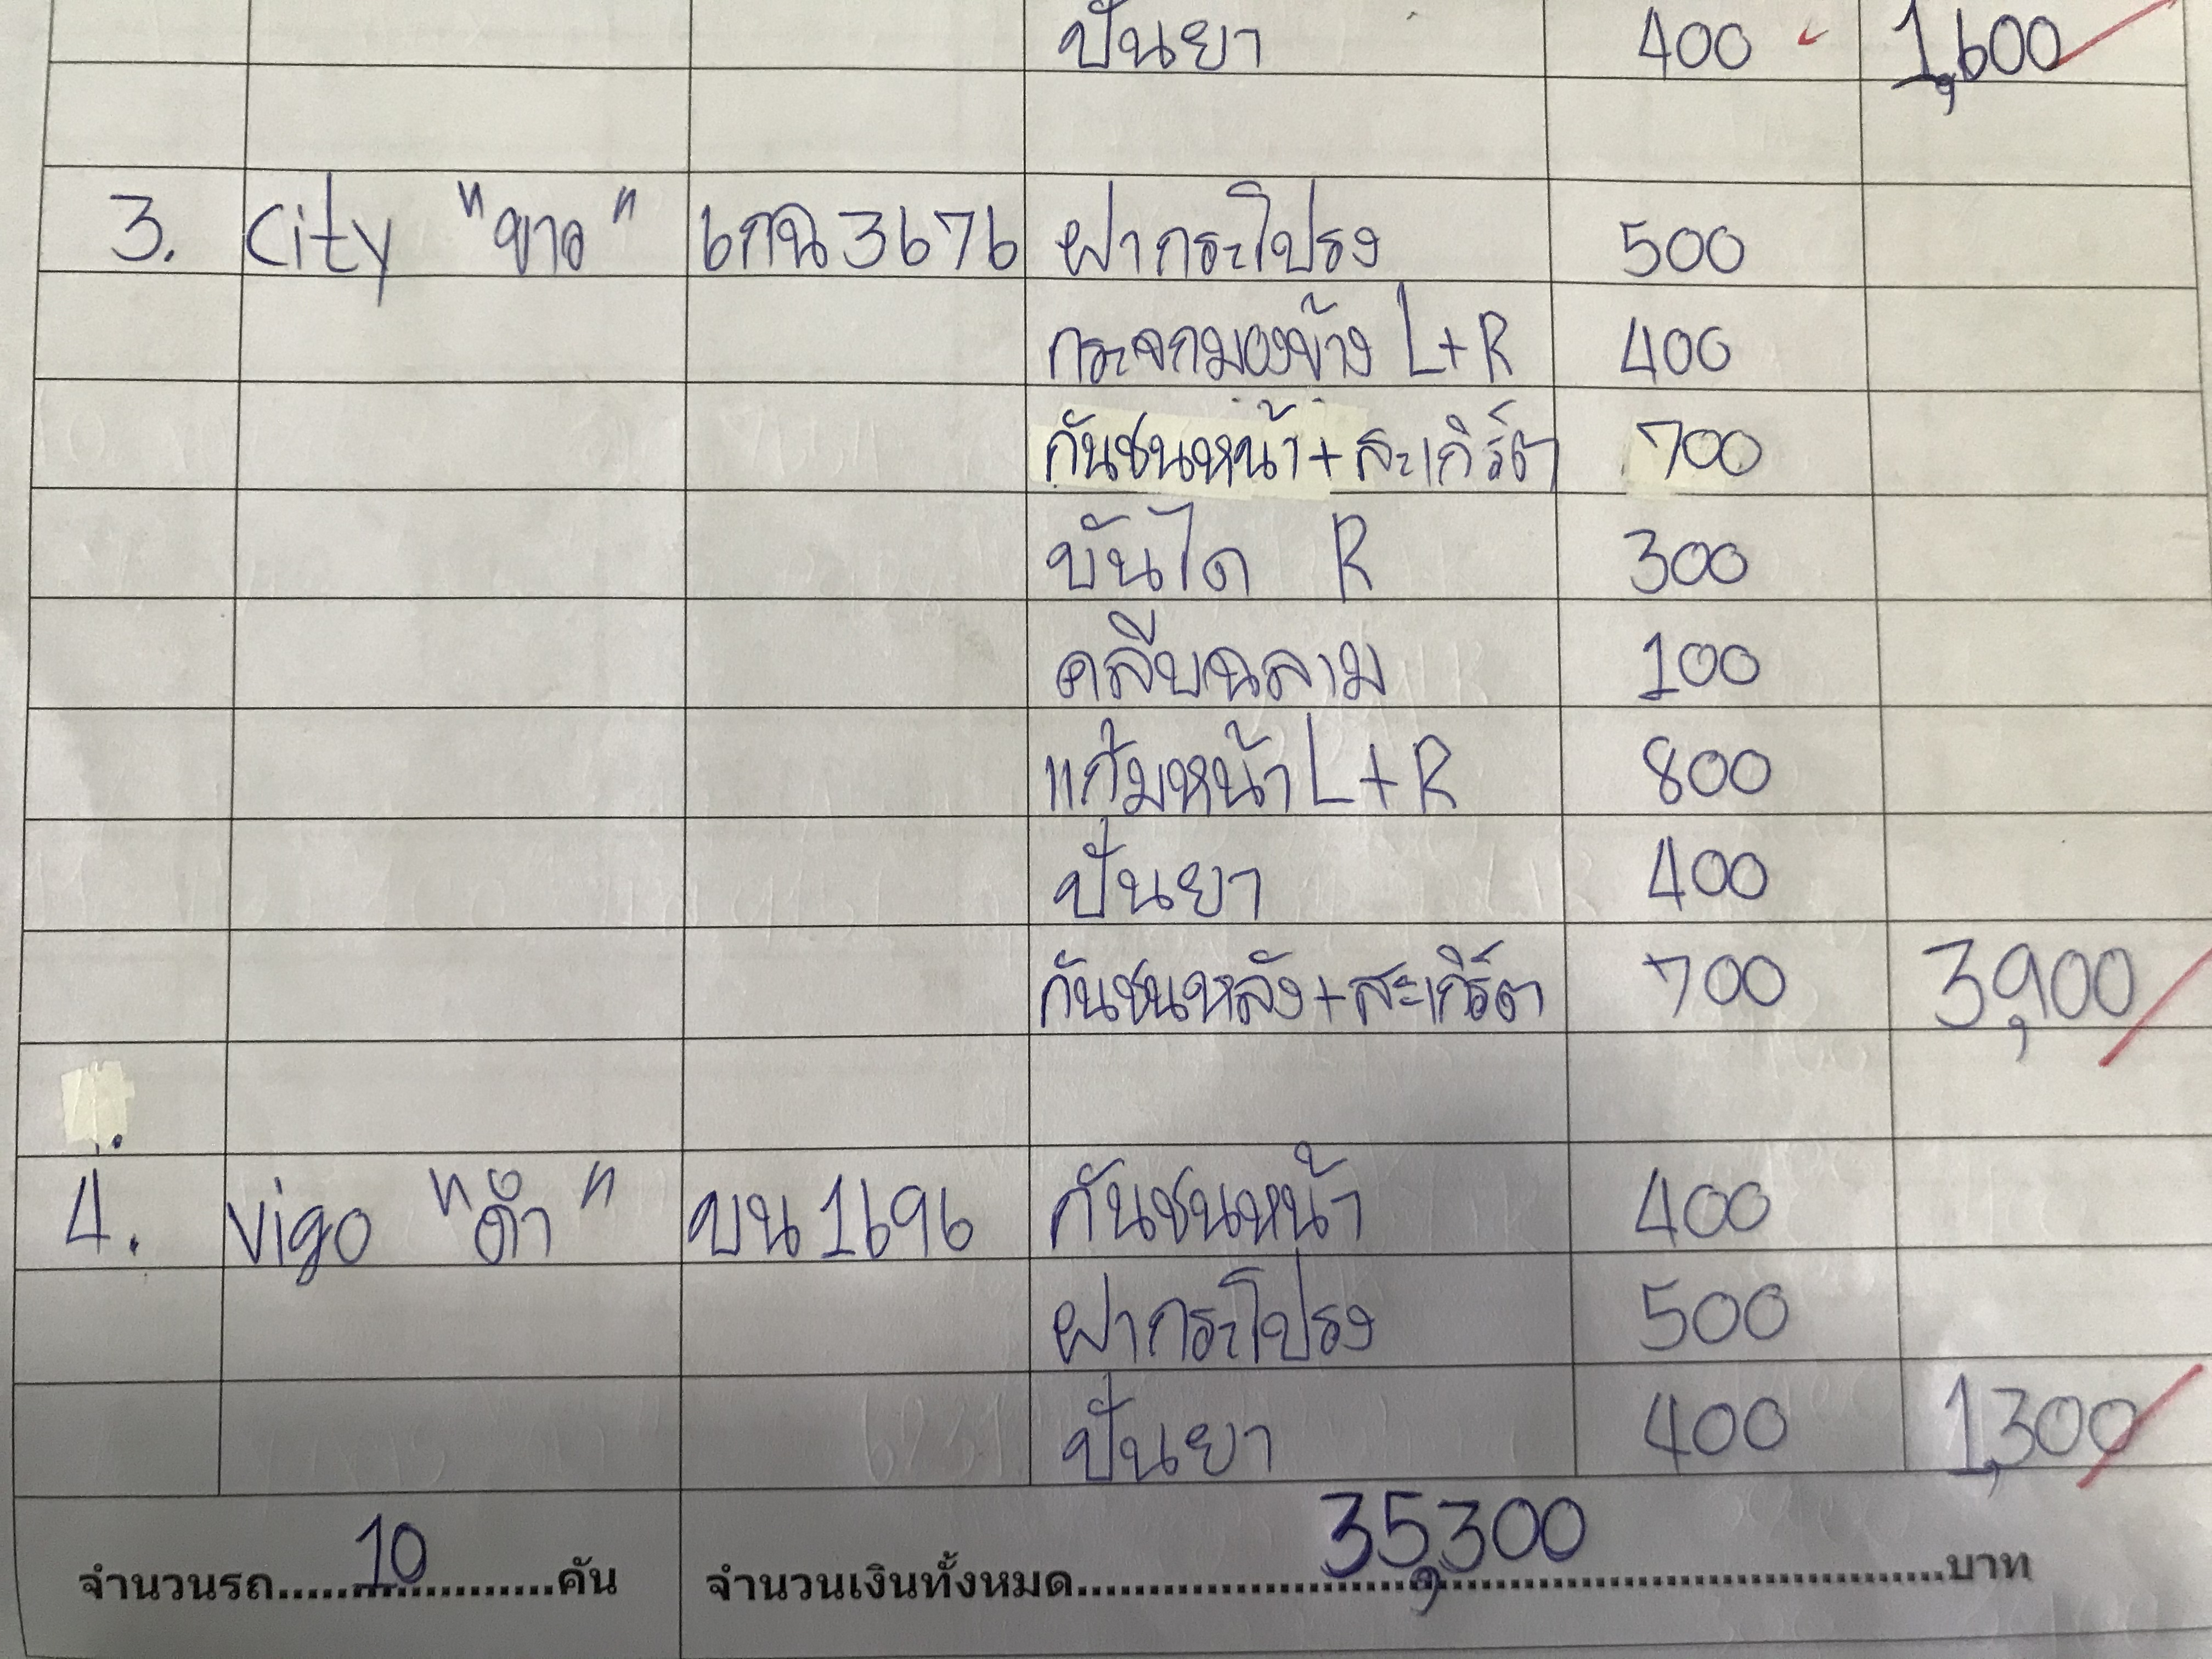 ปั่นยา 400 1,600
3. City "ขาว" 6กฉ 3676 ฝากระโปรง 500
กระจกมองข้าง L+R 400
กันชนหน้า+สะเกิร์ต 700
บันได R 300
คลีบฉลาม 100
แก้มหน้า L+R 800
ปั่นยา 400
กันชนหลัง+สะเกิร์ต 700 3,900
4. Vigo "ดำ" บน 1696 กันชนหน้า 400
ฝากระโปรง 500
ปั่นยา 400 1,300
จำนวนรถ.....10.....คัน จำนวนเงินทั้งหมด.....35,300.....บาท